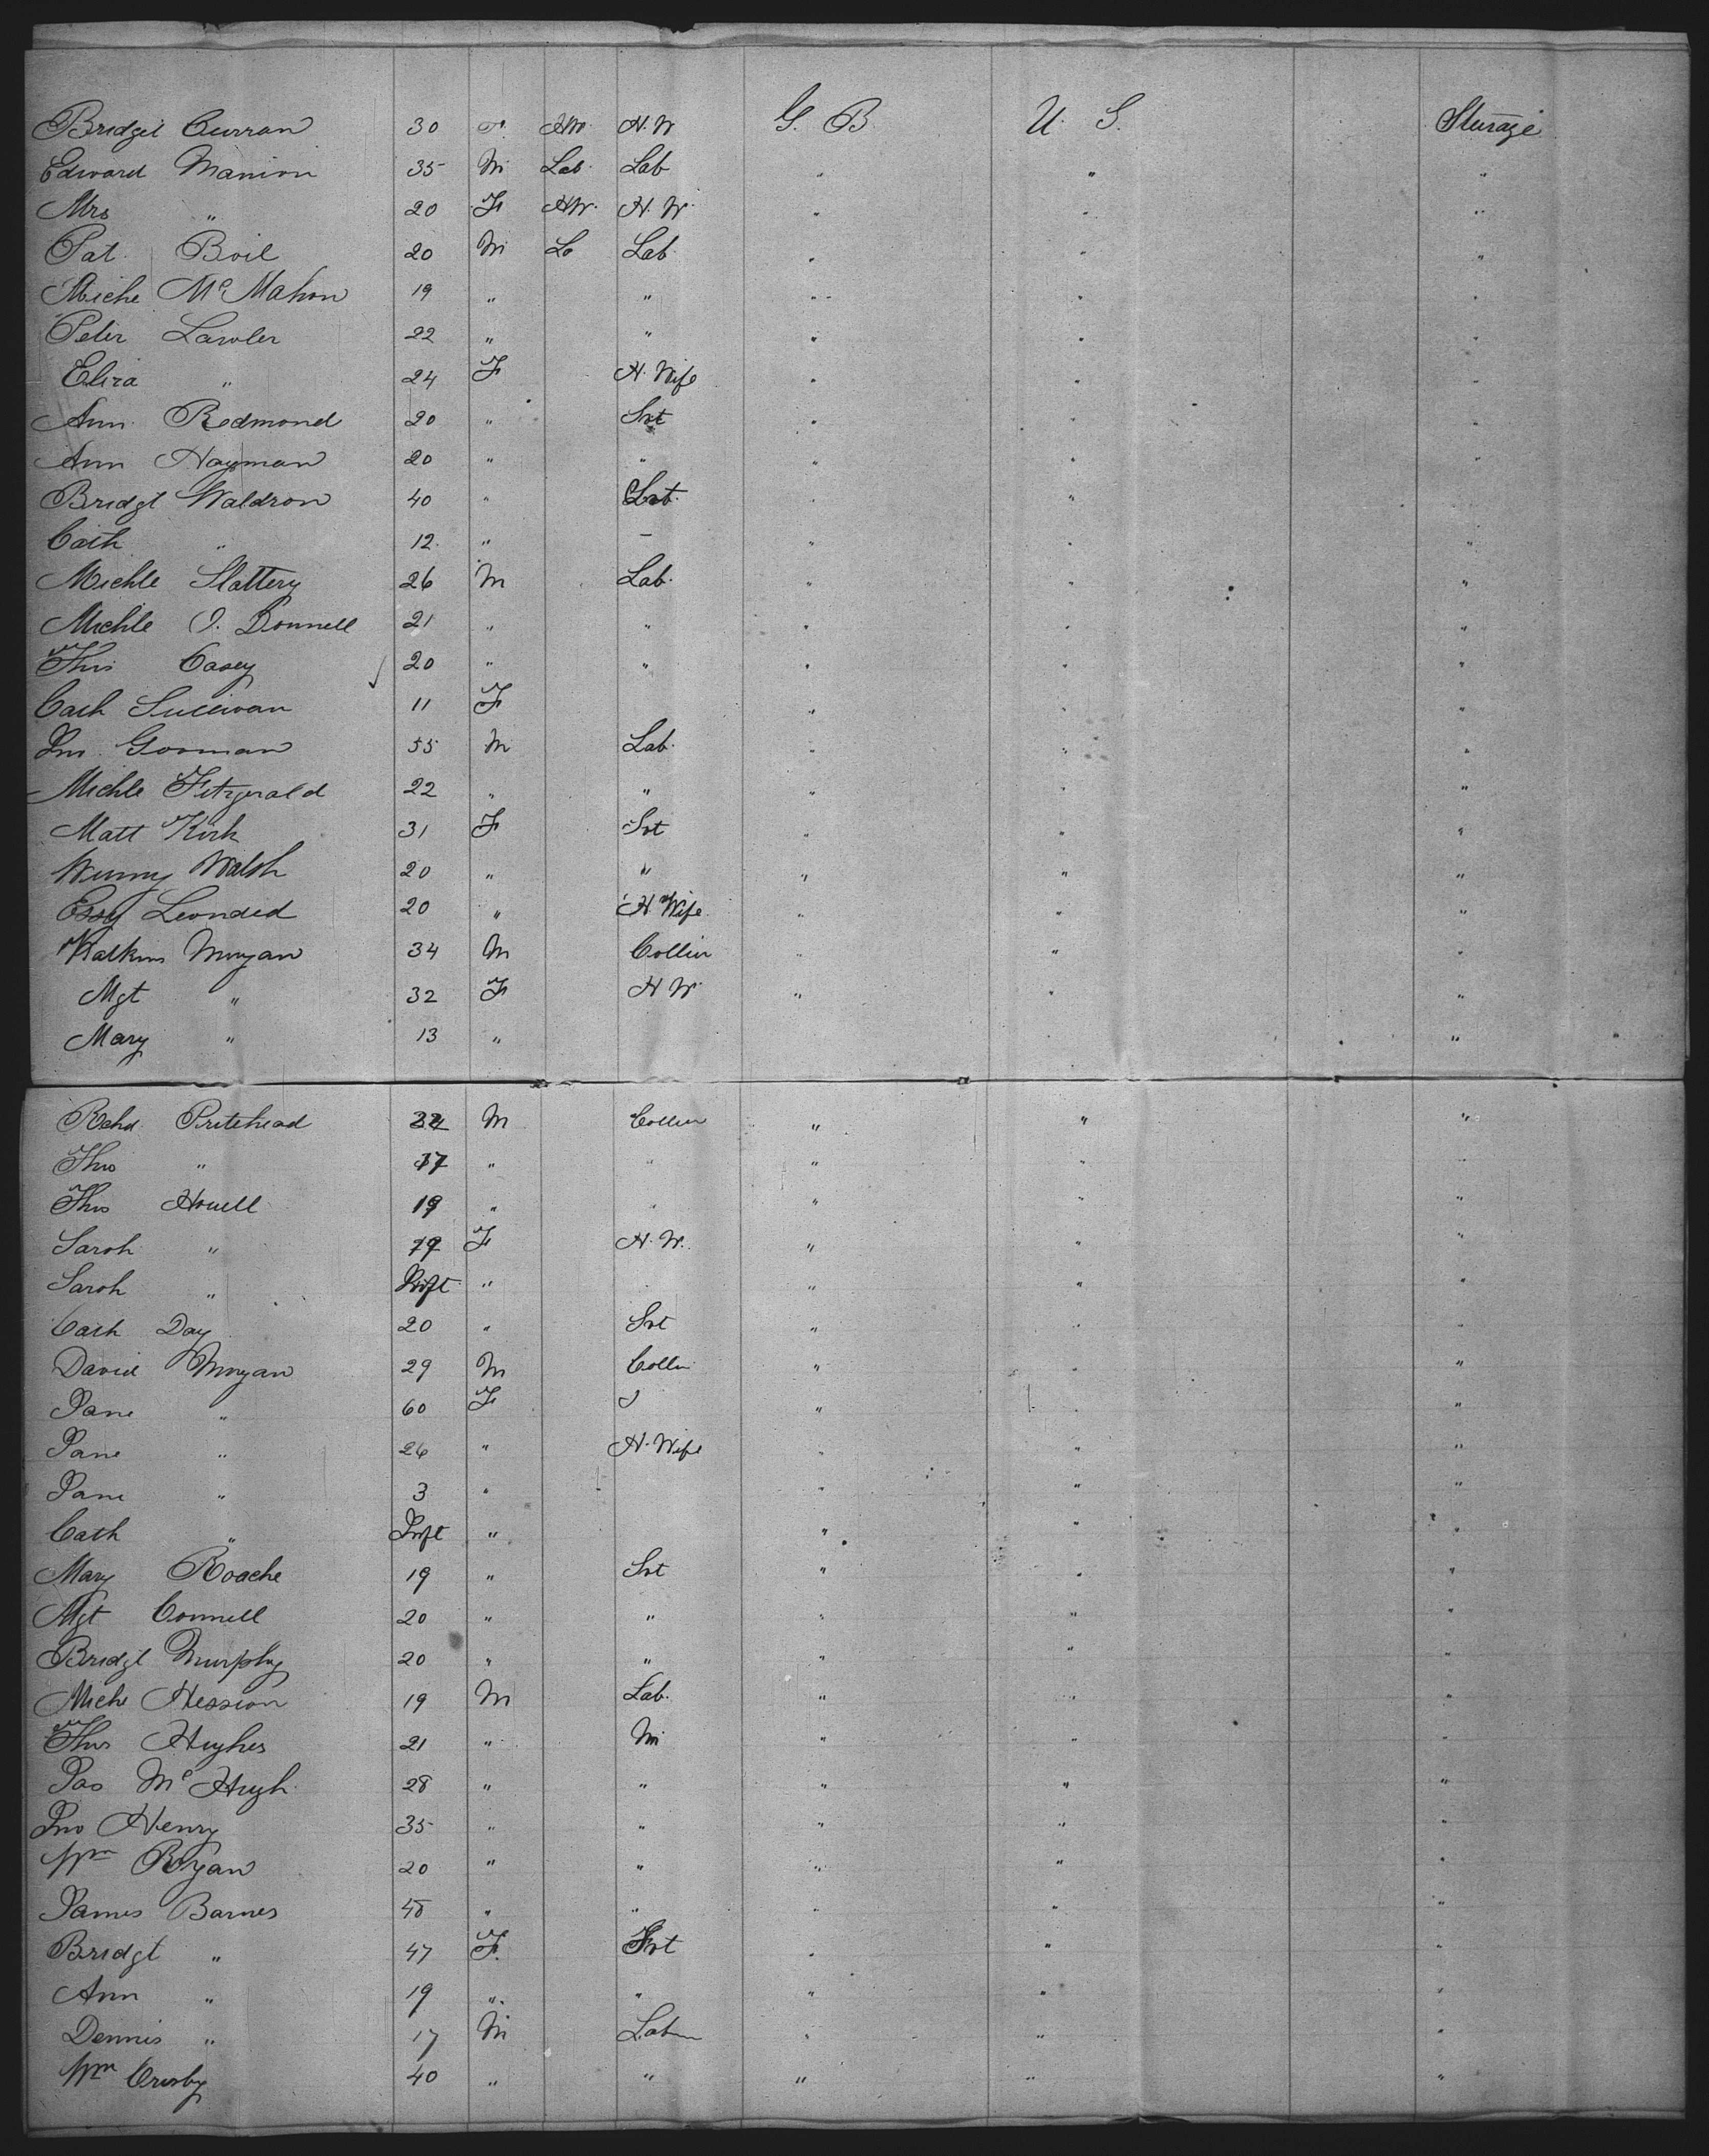 Bridget Curran 30 F. HW. H. W G. B U. S. Sturage
Edward Manion 35 M Lab. Lab " " "
Mrs " 20 F HW. H. W. " " "
Pat. Boil 20 M La Lab " " "
Miche Mc Mahon 19 " " " " "
Peter Lawler 22 " " " " "
Eliza " 24 F H. Wife " " "
Ann Redmond 20 " Svt " " "
Ann Hayman 20 " " " " "
Bridgt Waldron 40 " " " "
Cath " 12 " – " " "
Michle Slattery 26 M Lab. " " "
Michle O. Donnell 21 " " " " "
Thos Casey 20 " " " " "
Cath Sullivan 11 F " " "
Jno Gorman 55 M Lab. " " "
Michle Fitzgerald 22 " " " " "
Matt Kirk 31 F Svt " " "
Winny Walsh 20 " " " " "
Essy 20 " H Wife " " "
Watkins Morgan 34 M Collier " " "
Mgt " 32 F H W " " "
Mary " 13 " " "
Richd Pritchead M Collier " " "
Thos " 17 " " " " "
Thos Howell 19 " " " " "
Sarah " 19 F H. W. " " "
Sarah " Inft " " " "
Cath Day 20 " Svt " " "
David Morgan 29 M Collier " " "
Jane " 60 F " " "
Jane " 26 " H. Wife " " "
Jane " 3 " " " "
Cath " Inft " " " "
Mary Roache 19 " Svt " " "
Mgt Connell 20 " " " " "
Bridgt Murphy 20 " " " " "
Miche Hession 19 M Lab. " " "
Thos Hughes 21 " Mi " " "
Jas Mc Hugh 28 " " " " "
Jno Henry 35 " " " " "
Wm Ryan 20 " " " " "
James Barnes 48 " " " " "
Bridgt " 47 F. Svt " " "
Ann " 19 " " " " "
Dennis " 17 M Labr " " "
Wm Crosby 40 " " " " "